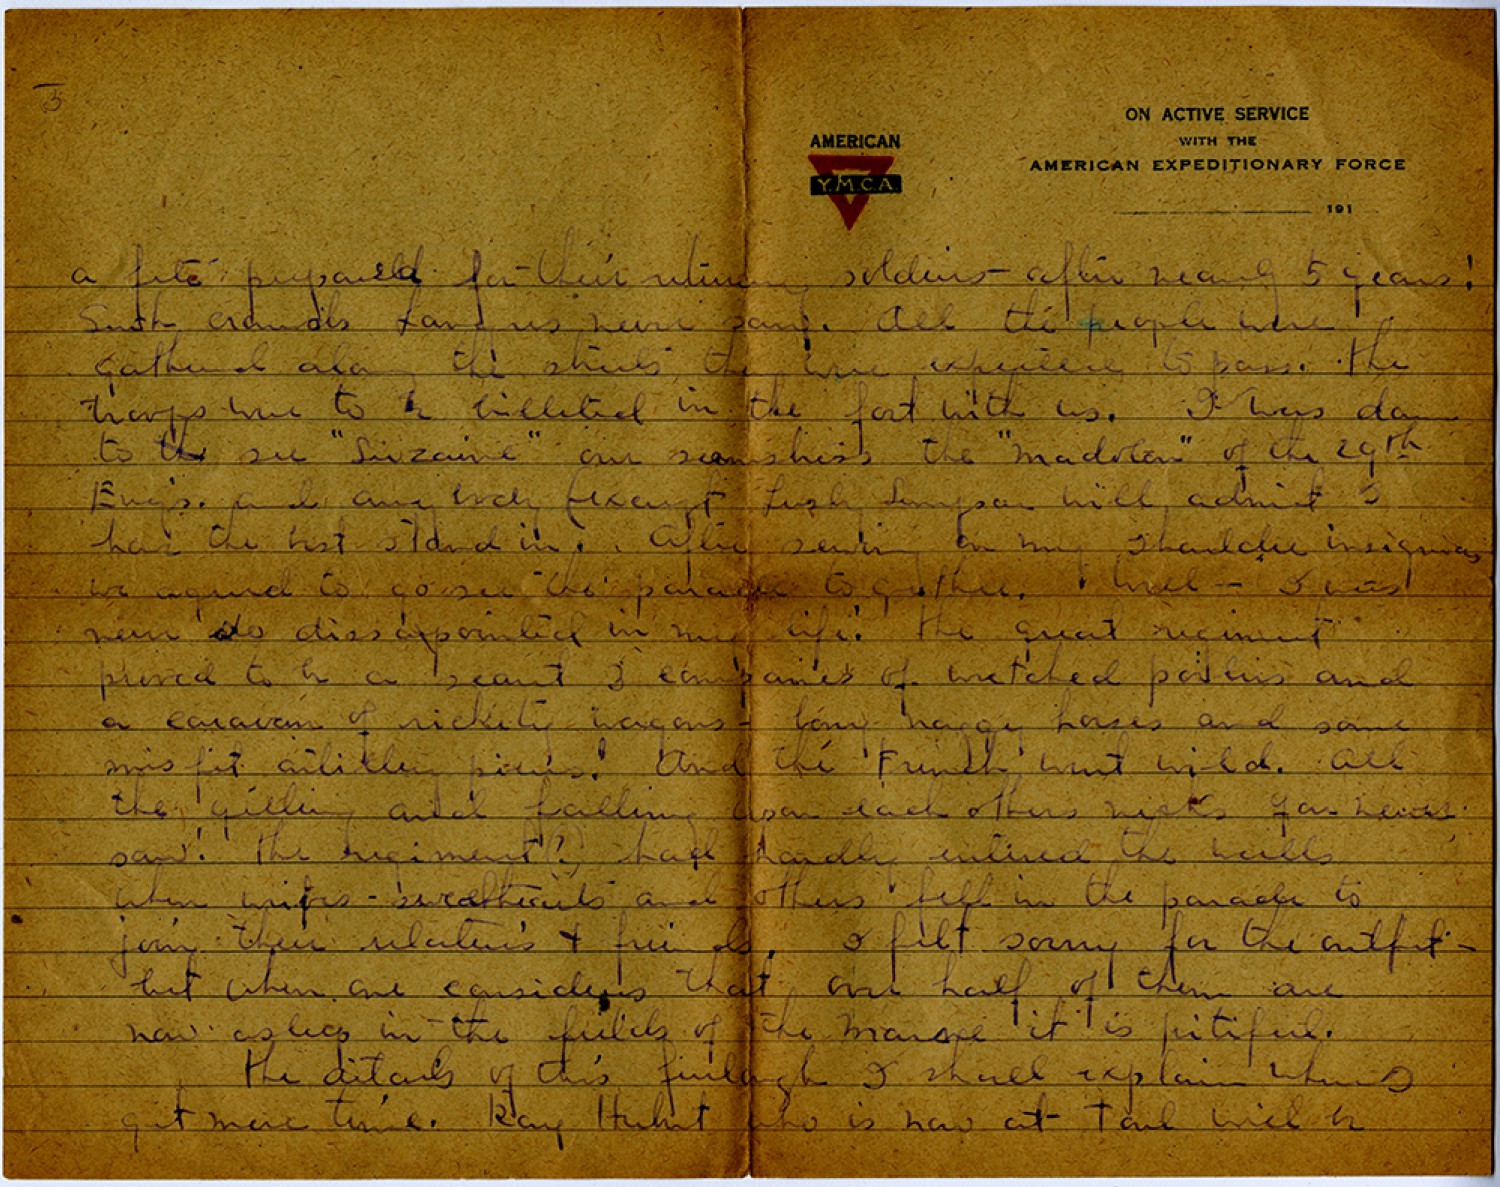 5
ON ACTIVE SERVICE
WITH THE
AMERICAN EXPEDITIONARY FORCE
191
AMERICAN
Y.M.C.A
a fete prepared for their returning soldiers - after nearly 5 years!
Such crowds Langres never saw. All the people were
gathered along the streets they were expected to pass. The
troops were to be billeted in the fort with us. I was down
to the see "Suzanne" our seamstress the "Madelon" of the 29th
Eng's. and any body (except Simpson will admit I
have the best stand in. After sewing on my shoulder insignias
we agreed to go see the parade to gether. Well - I was
never so dissappointed in my life! The great regiment
proved to be a scant 3 companies of wretched poilus and
a caravan of rickety wagons - bony naggy horses and some
misfit artillery pieces! And the French went wild. All
the yelling and falling upon each others necks you never
saw! The regiment(?) had hardly entered the walls
when wives - sweethearts and others fell in the parade to
join their relatives & friends. I felt sorry for the outfit -
but when one considers that over half of them are
now asleep in the fields of the Marne it is pitiful.
The details of this furlough I shall explain when I
get more time. Ray Hubert who is now at Toul will be